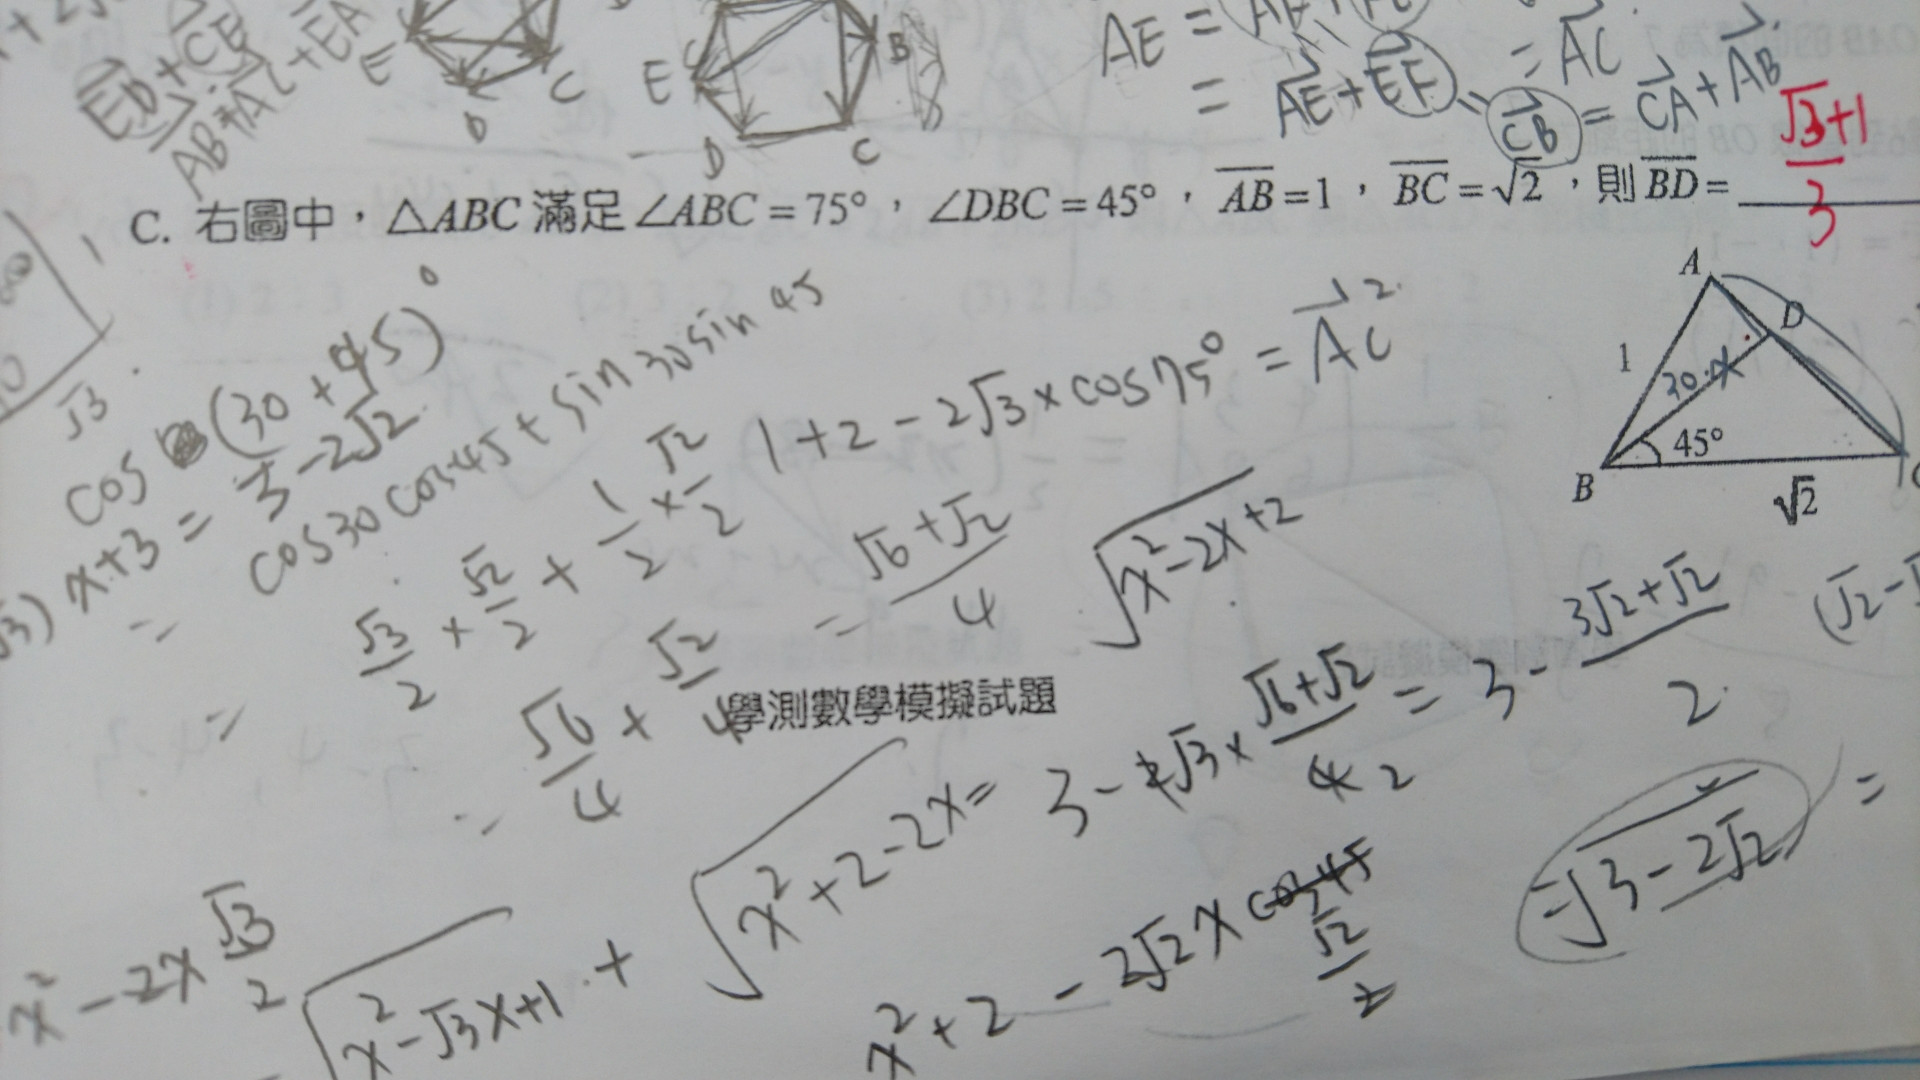 ED + CE
AB + AC + EA
E
D
C
E
B
D
C
AE =
= AE + EF = AC
CB = CA + AB
C. 右圖中，△ABC 滿足 ∠ABC = 75°，∠DBC = 45°，AB = 1，BC = √2，則 BD =
√3+1
3
1
√3
A
D
1
30°
x
45°
B
√2
cos (30 + 45)°
x+3 = 3 - 2√2
= cos30 cos45 + sin30 sin45
1 + 2 - 2√3 × cos75° = AC²
= √3/2 × √2/2 + 1/2 × √2/2
= √6/4 + √2/4 = (√6+√2)/4
√(x²-2x+2)
學測數學模擬試題
√(x²+2-2x) = 3 - 2√3 × (√6+√2)/4 = 3 - (3√2+√2)/2
= √(3-2√2) =
x² - 2x √3/2
√(x²-√3x+1) +
x² + 2 - 2√2 x cos45
√2/2